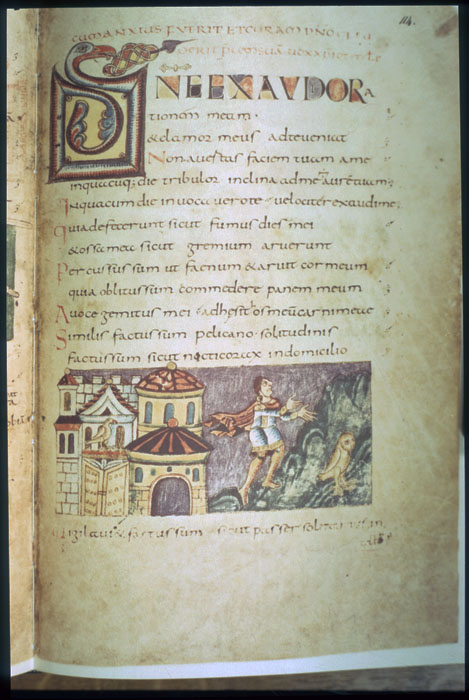 114.
CUM ANXIUS FUERIT ET CORAM DNO
DNE EXAUDI ORA
tionem meam
& clamor meus ad te veniat
Non avertas faciem tuam a me
in quacuq; die tribulor inclina ad me aurē tuam
In quacum die invocavero te velociter exaudi me
quia defecerunt sicut fumus dies mei
& ossa mea sicut gremium aruerunt
Percussus sum ut faenum & aruit cor meum
quia oblitus sum commedere panem meum
A voce gemitus mei adhesit os meū carni meae
Similis factus sum pelicano solitudinis
factus sum sicut nocticorax in domicilio
Vigilavi & factus sum sicut passer